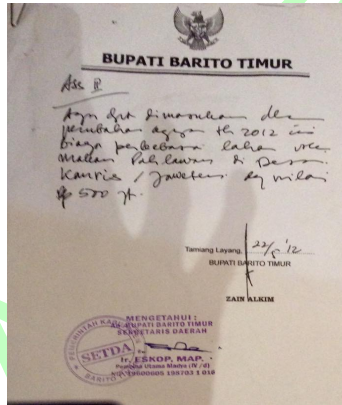 BUPATI BARITO TIMUR
Ass II
Agar dpt dimasukan dlm
perubahan aggran th 2012 ini
biaya pembebasan lahan utk
makam Pahlawan di Desa
/ Jaweten dg nilai
Rp 500 jt.
Tamiang Layang, 22/5 '12
BUPATI BARITO TIMUR
ZAIN ALKIM
MENGETAHUI :
AN. BUPATI BARITO TIMUR
SEKRETARIS DAERAH
PEMERINTAH KAB
SETDA
BARITO
Ir. ESKOP, MAP.
Pembina Utama Madya (IV/d)
198703 1 016